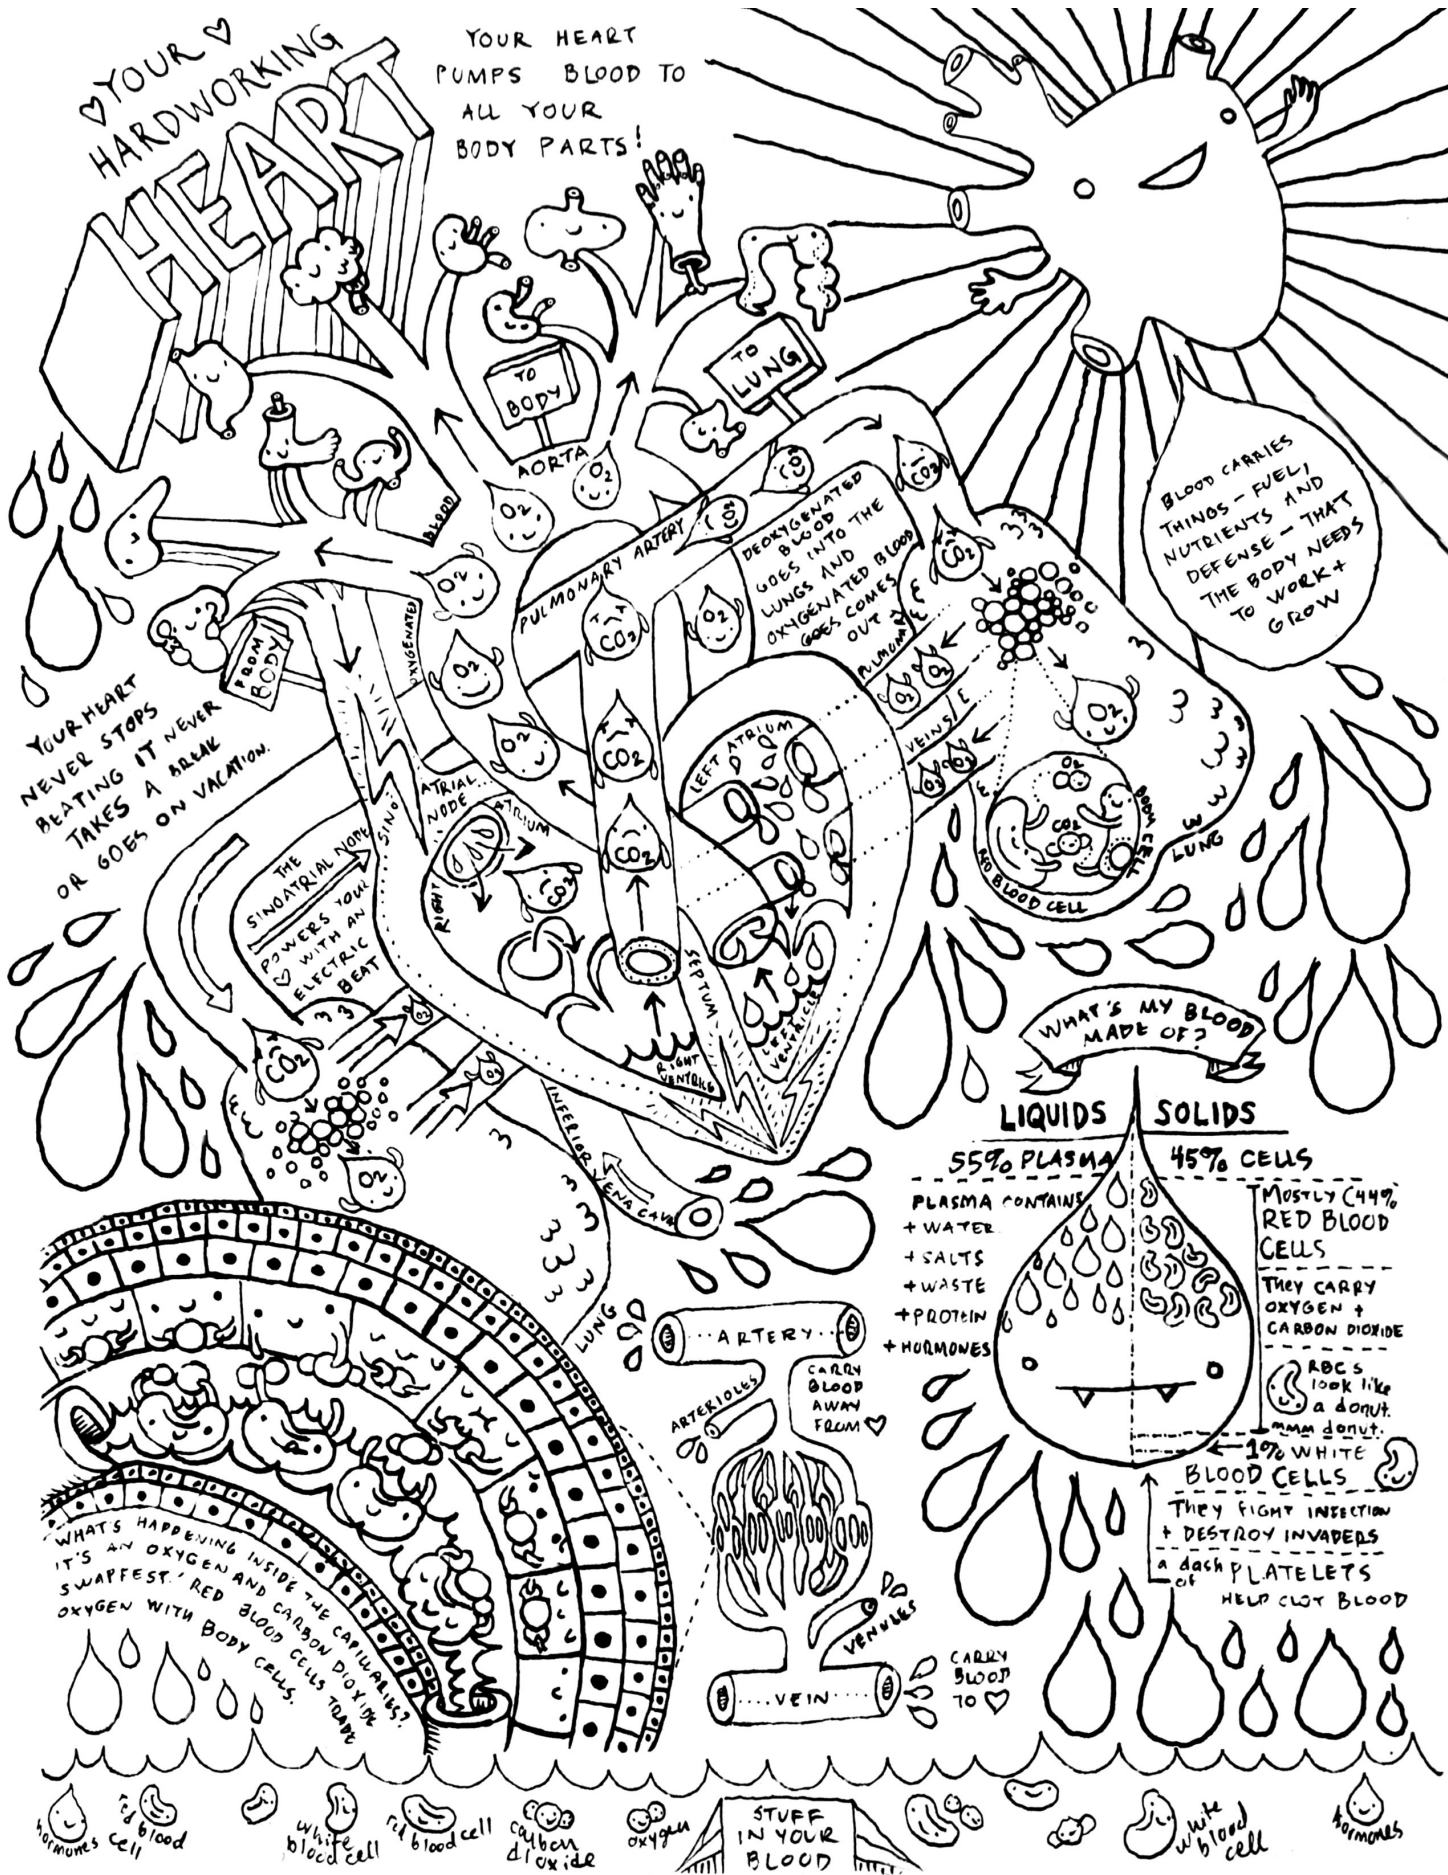 YOUR
HARDWORKING
HEART
YOUR HEART
PUMPS BLOOD TO
ALL YOUR
BODY PARTS!
TO
BODY
TO
LUNG
AORTA
O2
O2
CO2
CO2
CO2
BLOOD
OXYGENATED
O2
PULMONARY ARTERY
DEOXYGENATED
BLOOD
GOES INTO THE
LUNGS AND
OXYGENATED BLOOD
GOES COMES
OUT
BLOOD CARRIES
THINGS - FUEL,
NUTRIENTS AND
DEFENSE - THAT
THE BODY NEEDS
TO WORK +
GROW
CO2
CO2
O2
O2
O2
PULMONARY
VEINS
O2
O2
O2
O2
O2
FROM
BODY
YOUR HEART
NEVER STOPS
BEATING IT NEVER
TAKES A BREAK
OR GOES ON VACATION.
CO2
CO2
CO2
LEFT ATRIUM
SINO
ATRIAL
NODE
RIGHT
ATRIUM
O2
CO2
RED BLOOD CELL
BODY CELL
LUNG
THE
SINOATRIAL NODE
POWERS YOUR
WITH AN
ELECTRIC
BEAT
SEPTUM
LEFT
VENTRICLE
RIGHT
VENTRICLE
CO2
O2
O2
O2
INFERIOR VENA CAVA
LUNG
WHAT'S MY BLOOD
MADE OF?
LIQUIDS SOLIDS
55% PLASMA 45% CELLS
PLASMA CONTAINS
+ WATER
+ SALTS
+ WASTE
+ PROTEIN
+ HORMONES
MOSTLY (44%
RED BLOOD
CELLS
THEY CARRY
OXYGEN +
CARBON DIOXIDE
RBC's
look like
a donut.
mmm donut.
1% WHITE
BLOOD CELLS
THEY FIGHT INFECTION
+ DESTROY INVADERS
a dash
of PLATELETS
HELP CLOT BLOOD
ARTERY
ARTERIOLES
CARRY
BLOOD
AWAY
FROM
VENULES
VEIN
CARRY
BLOOD
TO
WHAT'S HAPPENING INSIDE THE CAPILLARIES?
IT'S AN OXYGEN AND CARBON DIOXIDE
SWAPFEST! RED BLOOD CELLS TRADE
OXYGEN WITH BODY CELLS.
hormones
red blood
cell
white
blood cell
red blood cell
carbon
dioxide
oxygen
STUFF
IN YOUR
BLOOD
white
blood
cell
hormones